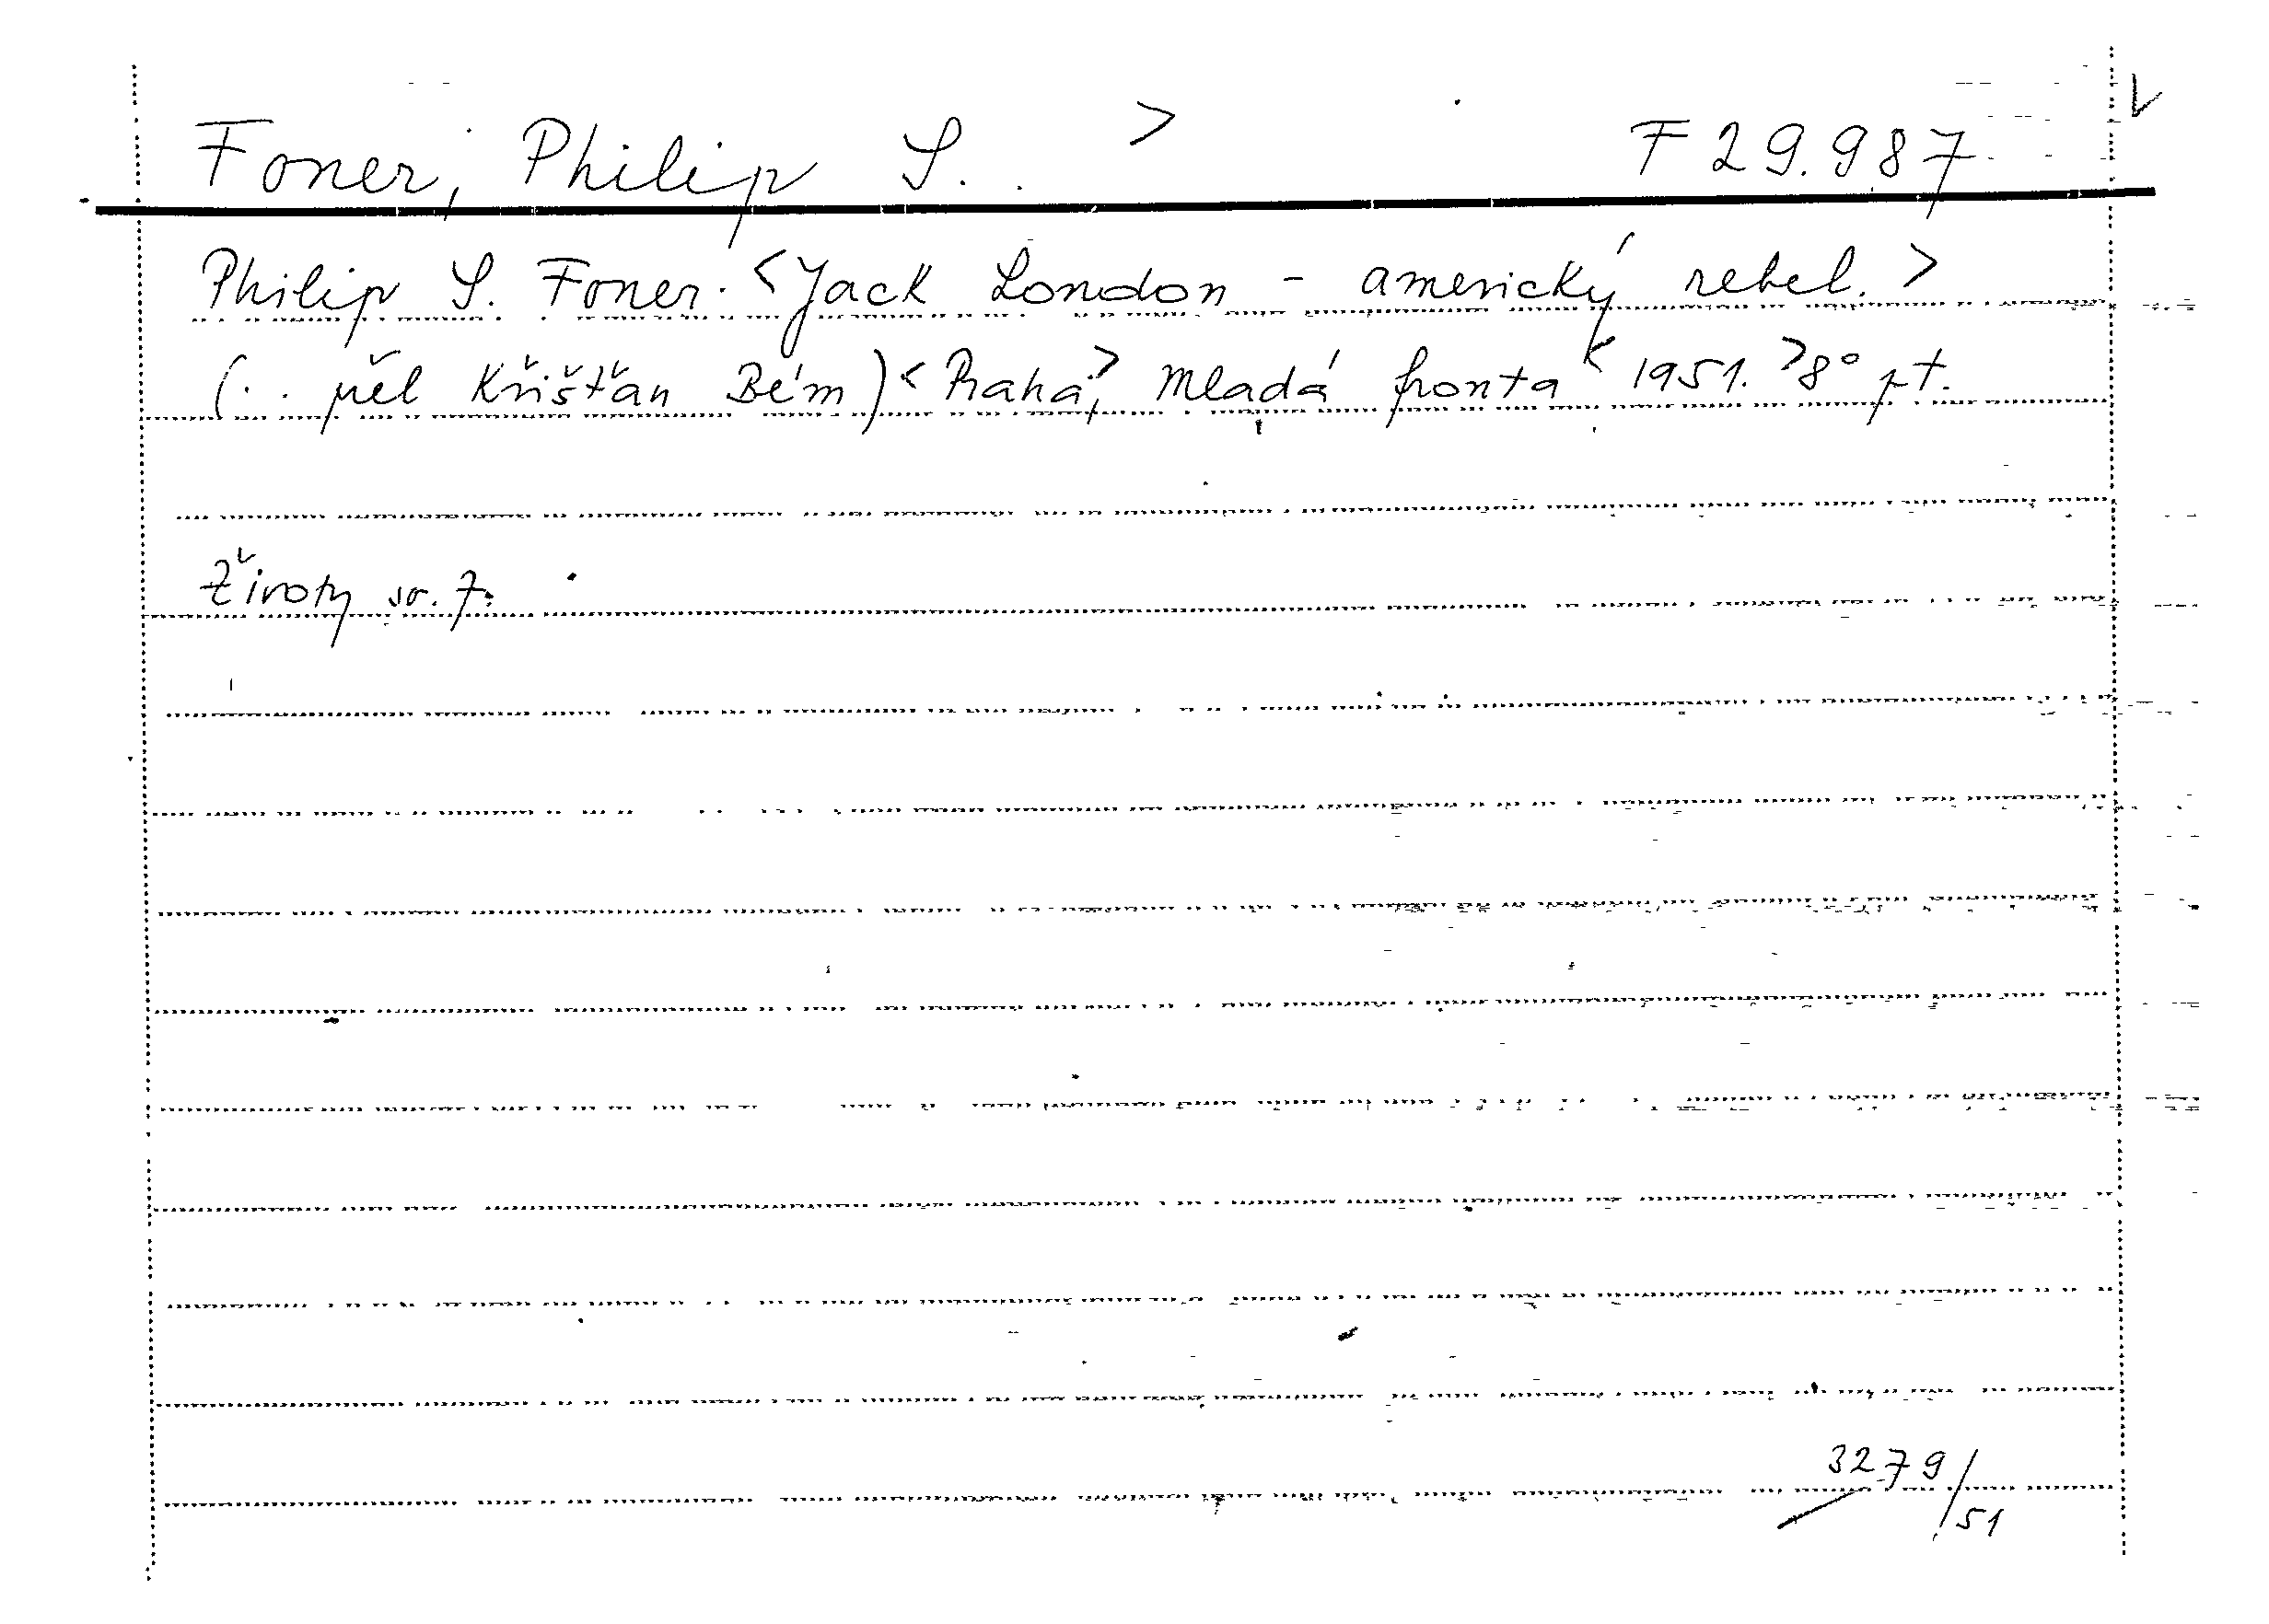 Foner, Philip S. > F 29.987
Philip S. Foner. <Jack London - americký rebel.>
(.. přel Křišťan Bém) <Praha,> Mladá fronta < 1951. > 8° pt.
Životy sv. 7.
3279/51